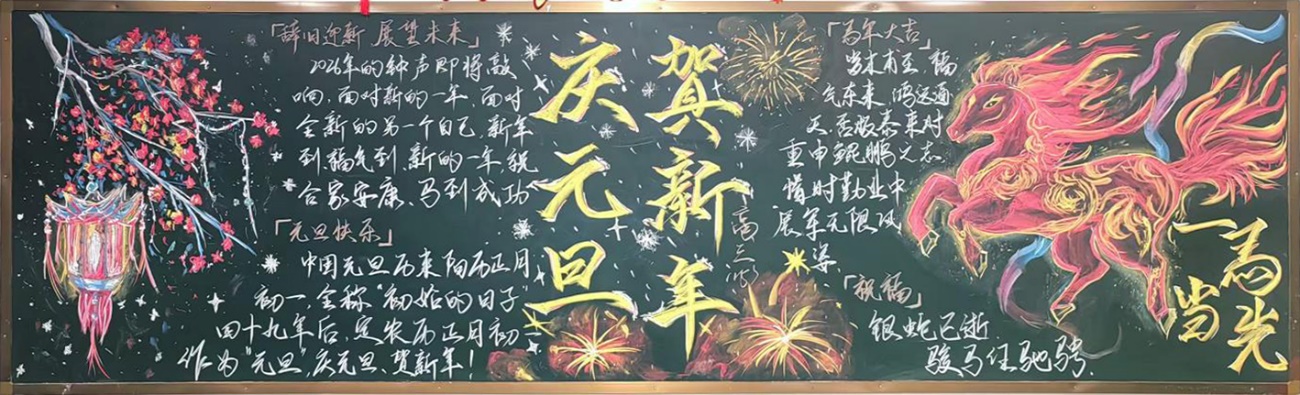 「辞旧迎新 展望未来」
2026年的钟声即将敲
响,面对新的一年,面对
全新的另一个自己,新年
到福气到,新的一年,祝
合家安康、马到成功
「元旦快乐」
中国元旦历来阳历正月
初一,全称“初始的日子”
四十九年后,定农历正月初一
作为“元旦”庆元旦,贺新年!
庆元旦
贺新年
「马年大吉」
岁末甫至,福
气东来,鸿运通
天,否极泰来时
重申鲲鹏之志
惜时勤业中
展年无限风
姿
「祝福」
银蛇已逝
骏马任驰骋.
一马当先